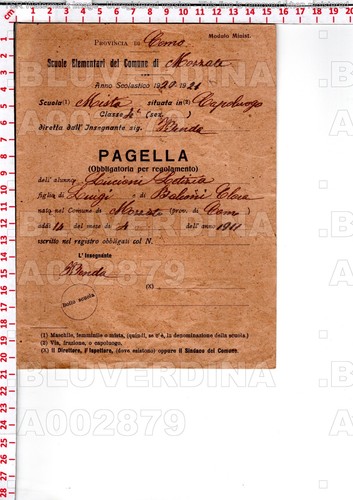 Modulo Minist.
PROVINCIA DI Como
Scuole Elementari del Comune di Mozzate
Anno Scolastico 1920-1921
Scuola (1) Mista situata in (2) Capoluogo
Classe 4ª (sez. )
diretta dall'Insegnante sig. Benda
PAGELLA
(Obbligatoria per regolamento)
dell'alunn Luciani
figli di Luigi e di
nat nel Comune di (prov. di Como)
addì 14 del mese di 4 dell'anno 1911
iscritto nel registro obbligati col N.
L'Insegnante
Benda
(X)
Bollo scuola
(1) Maschile, femminile o mista, (quindi, se s'è, la denominazione della scuola.)
(2) Via, frazione, o capoluogo.
(X) Il Direttore, l'Ispettore, (dove esistono) oppure il Sindaco del Comune.
BLUVERDINA
A002879